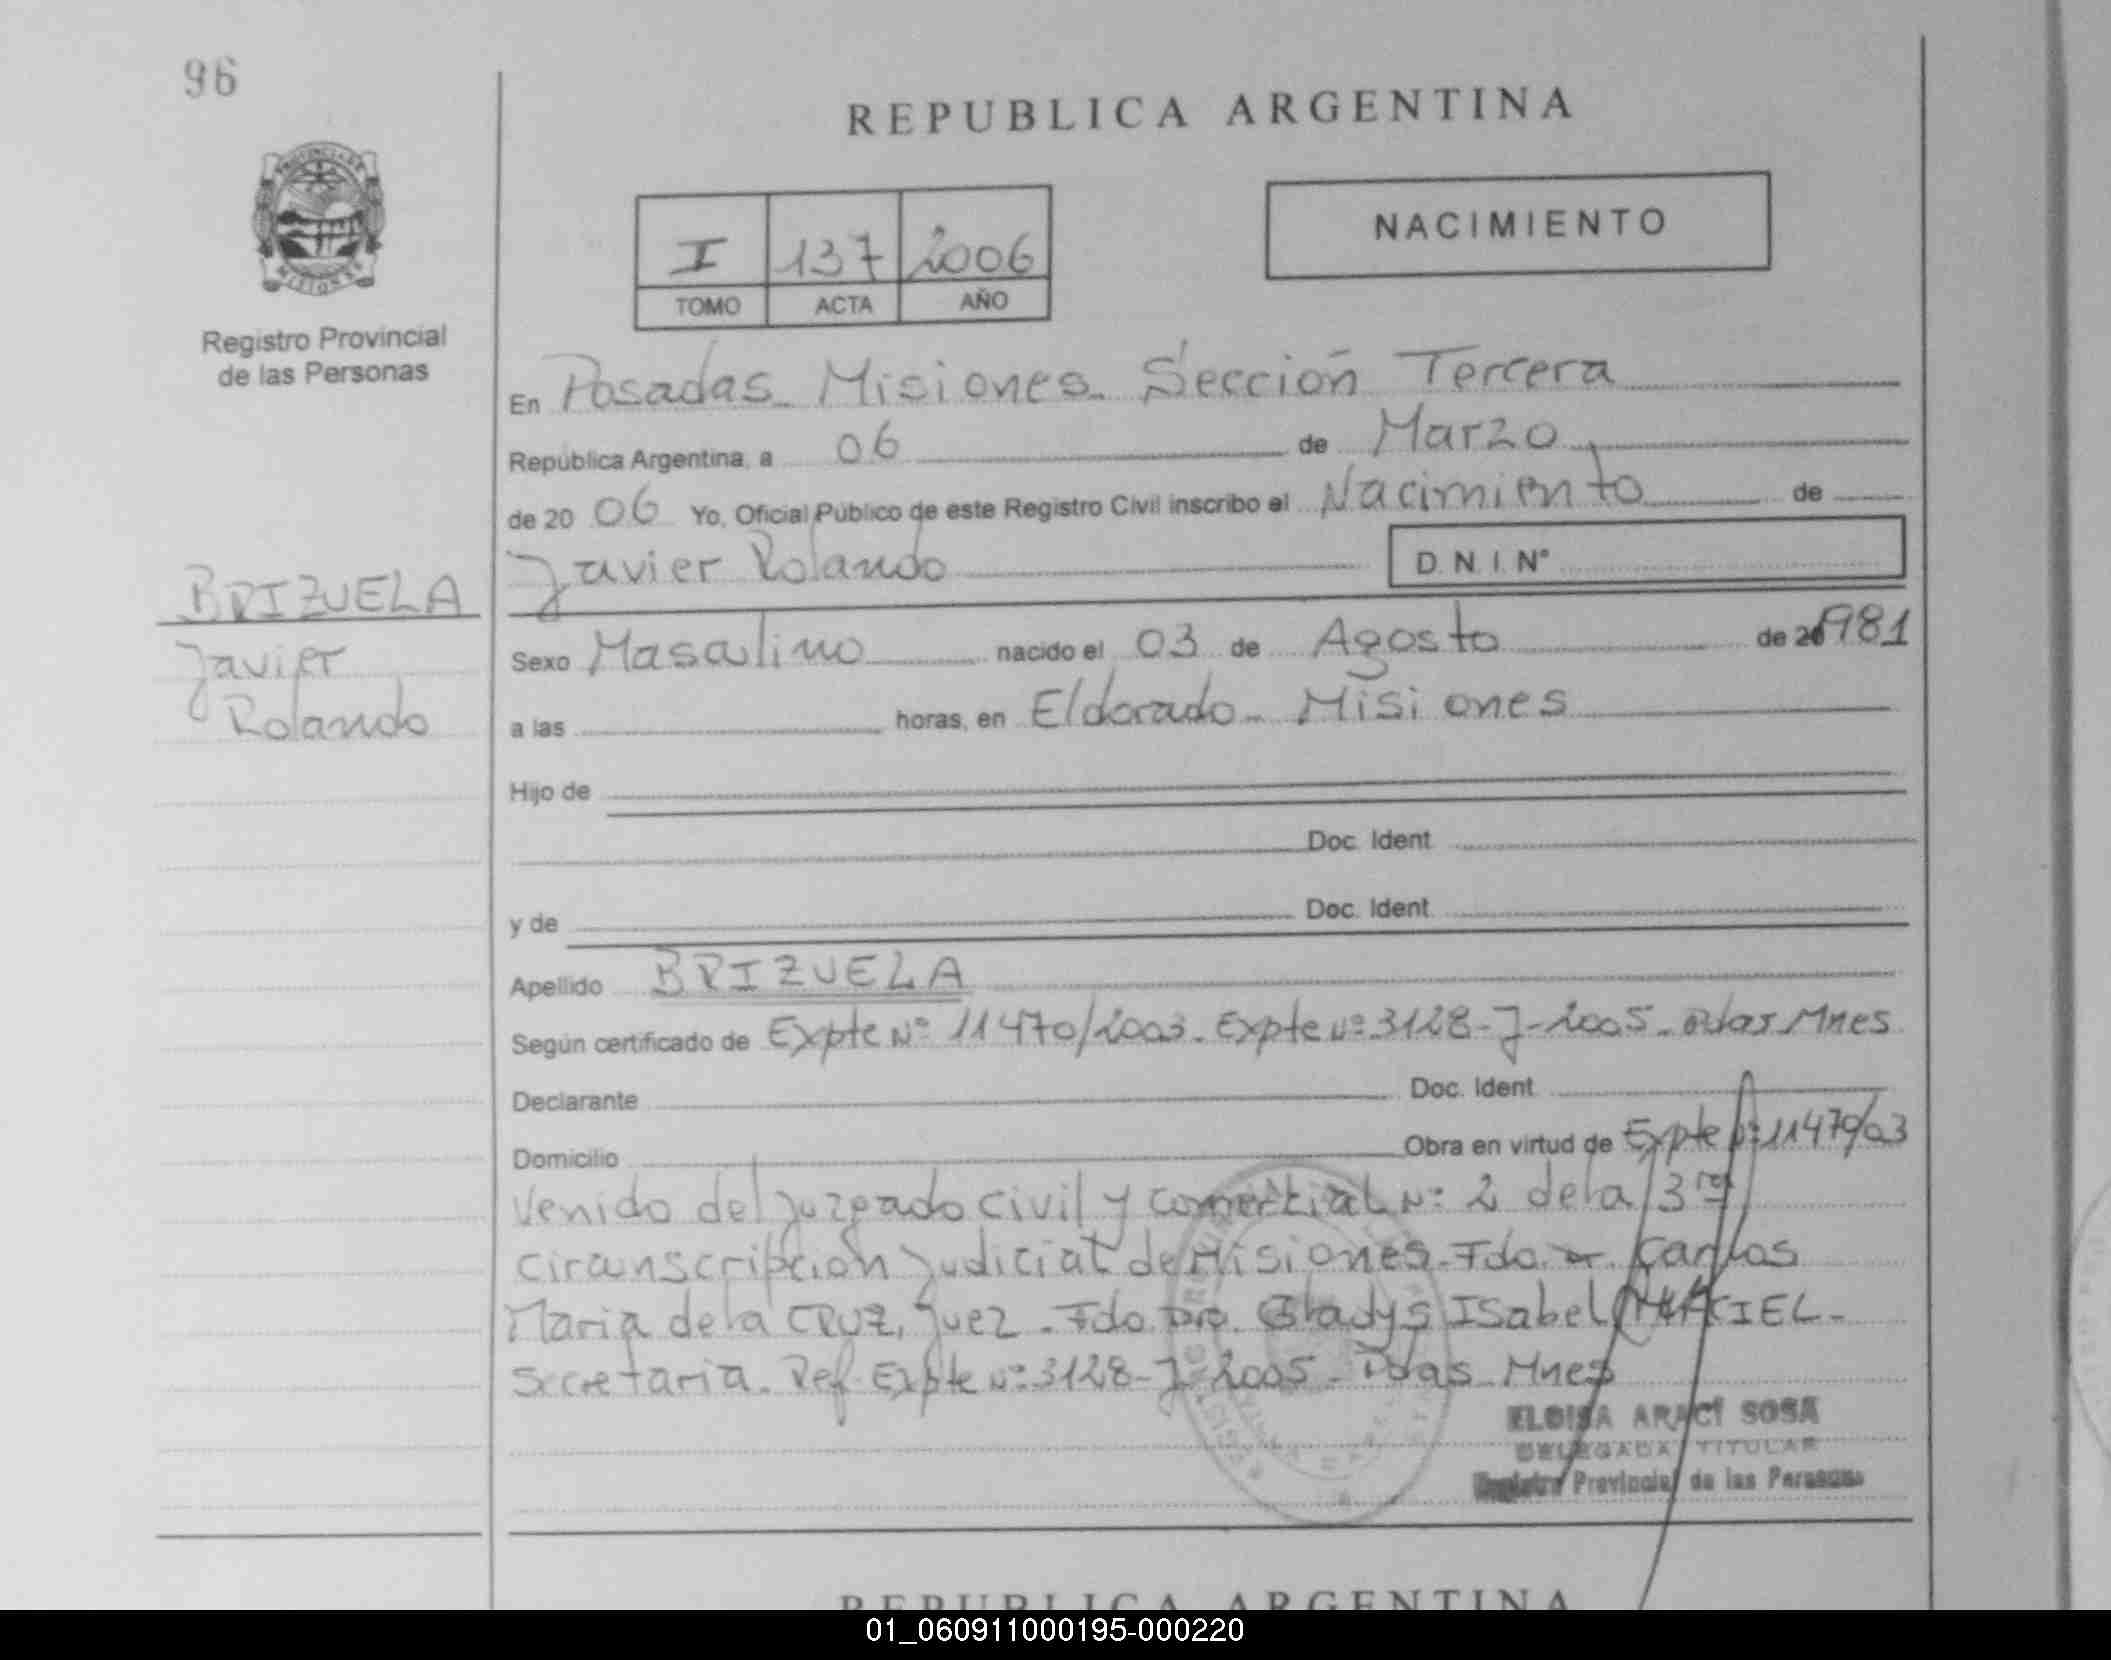 96
REPUBLICA ARGENTINA
I 137 2006
TOMO ACTA AÑO
NACIMIENTO
Registro Provincial
de las Personas
En Posadas - Misiones - Sección Tercera
República Argentina, a 06 de Marzo
de 20 06 Yo, Oficial Público de este Registro Civil inscribo el Nacimiento de
Javier Rolando D.N.I. Nº
BRIZUELA
Javier
Rolando
Sexo Masculino nacido el 03 de Agosto de 1981
a las horas, en Eldorado - Misiones
Hijo de
Doc. Ident.
y de Doc. Ident.
Apellido BRIZUELA
Según certificado de Expte Nº 11470/2003 - Expte Nº 3128-J-2005 - Pdas Mnes
Declarante Doc. Ident.
Domicilio Obra en virtud de Expte Nº 11470/03
venido del Juzgado civil y comercial Nº 2 de la 3ra
circunscripción Judicial de Misiones - Fdo. Dr. Carlos
Maria de la CRUZ, Juez - Fdo Dra. Gladys Isabel MACIEL -
Secretaria. Ref. Expte Nº 3128-J-2005 - Pdas Mnes
ELOISA ARACI SOSA
DELEGADA TITULAR
Registro Provincial de las Personas
REPUBLICA ARGENTINA
01_060911000195-000220